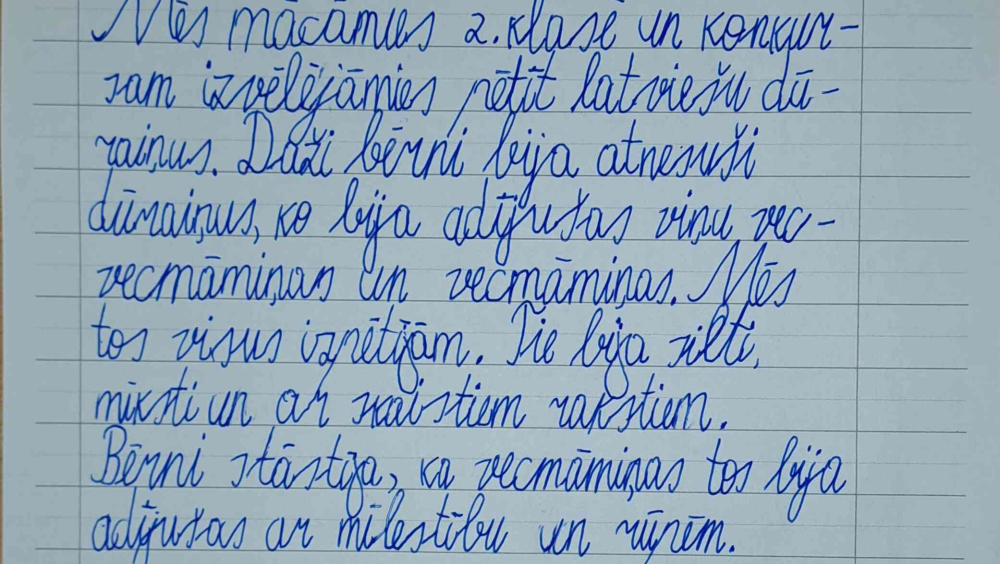 Mēs mācāmies 2. klasē un konkur-
sam izvēlējāmies pētīt latviešu dū-
raiņus. Daži bērni bija atnesuši
dūraiņus, ko bija adījušas viņu vec-
vecmāmiņas un vecmāmiņas. Mēs
tos visus izpētījām. Tie bija silti,
mīksti un ar skaistiem rakstiem.
Bērni stāstīja, ka vecmāmiņas tos bija
adījušas ar mīlestību un rūpēm.